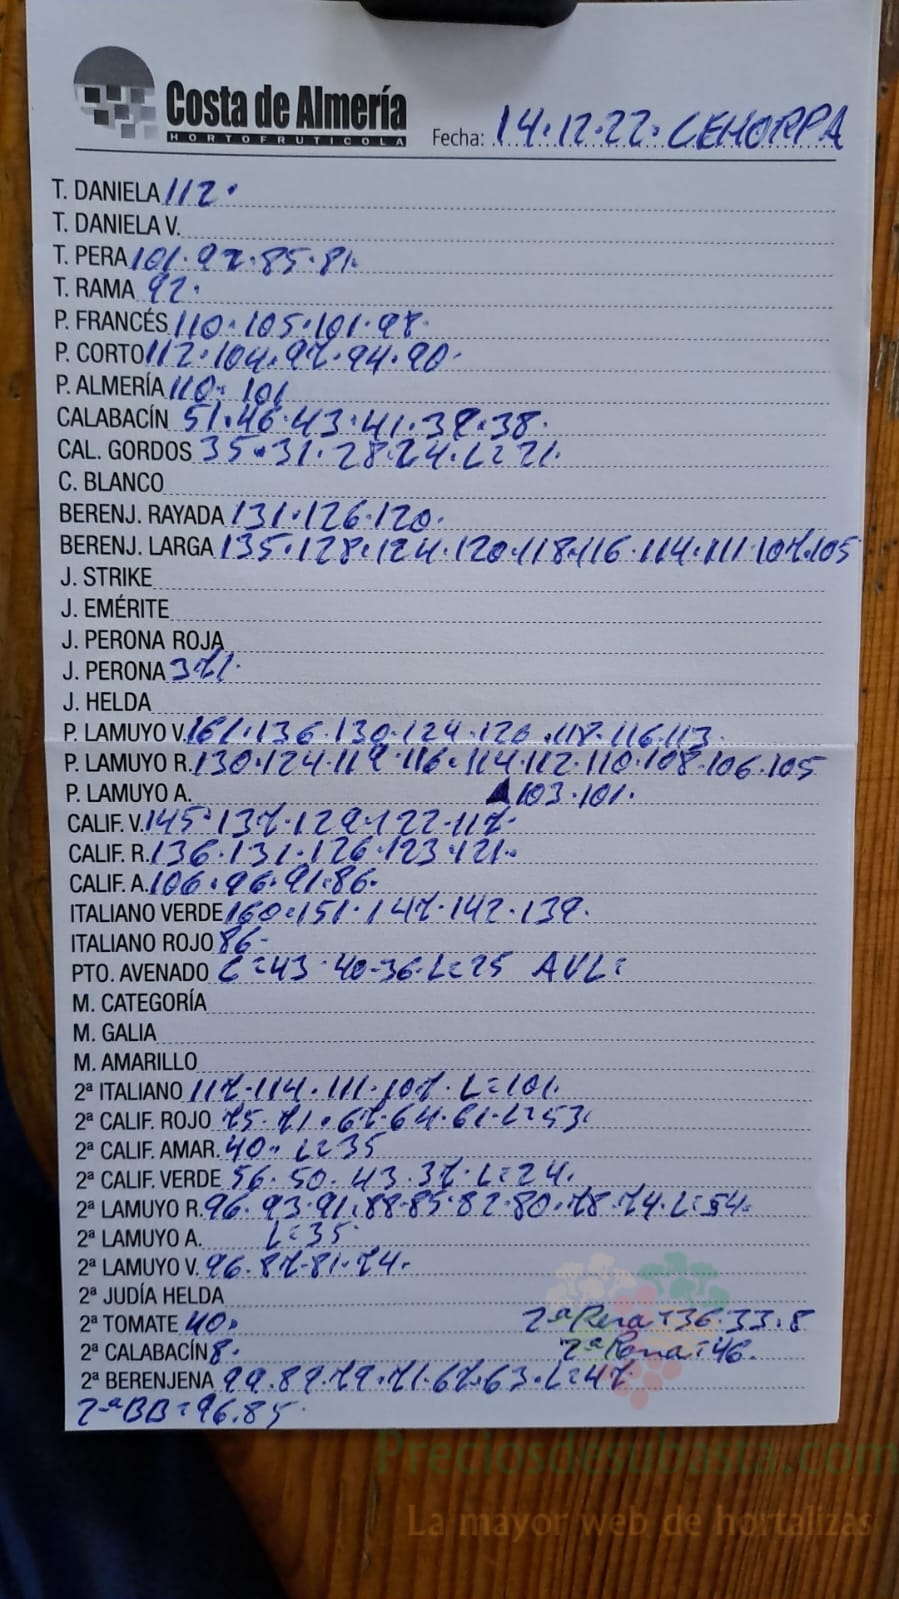 Costa de Almería
HORTOFRUTICOLA
Fecha: 14.12.22. CEHORPA
T. DANIELA 112.
T. DANIELA V.
T. PERA 101.97.85.81.
T. RAMA 92.
P. FRANCÉS 110.105.101.98.
P. CORTO 112.104.97.94.90.
P. ALMERÍA 110.101
CALABACÍN 51.46.43.41.39.38.
CAL. GORDOS 35.31.28.24.L=21.
C. BLANCO
BERENJ. RAYADA 131.126.120.
BERENJ. LARGA 135.128.124.120.118.116.114.111.107.105
J. STRIKE
J. EMÉRITE
J. PERONA ROJA
J. PERONA 371.
J. HELDA
P. LAMUYO V. 161.136.130.124.120.118.116.113.
P. LAMUYO R. 130.124.119.116.114.112.110.108.106.105
P. LAMUYO A. 103.101.
CALIF. V. 145.137.129.122.117.
CALIF. R. 136.131.126.123.121.
CALIF. A. 106.96.91.86.
ITALIANO VERDE 160.151.147.142.139.
ITALIANO ROJO 86-
PTO. AVENADO C=43.40-36.L=25 AVL=
M. CATEGORÍA
M. GALIA
M. AMARILLO
2ª ITALIANO 117.114.111.107.L=101.
2ª CALIF. ROJO 75.71.67.64.61.L=53.
2ª CALIF. AMAR. 40.L=35
2ª CALIF. VERDE 56.50.43.37.L=24.
2ª LAMUYO R. 96.93.91.88.85.82.80.78.74.L=54.
2ª LAMUYO A. L=35
2ª LAMUYO V. 96.87.81.74.
2ª JUDÍA HELDA
2ª TOMATE 40. 2ª Pera=36.33.8
2ª CALABACÍN 8. 2ª Rama=46.
2ª BERENJENA 99.89.79.71.67.63.L=47
2ªBB=96.85.
Preciosdesubasta.com
La mayor web de hortalizas